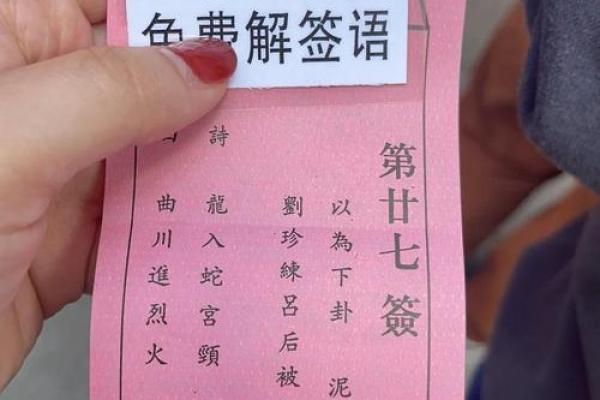 免费解签语
第廿七簽
以為下卦 泥
劉珍練呂后被
詩 龍入蛇宮頸
曲川進烈火